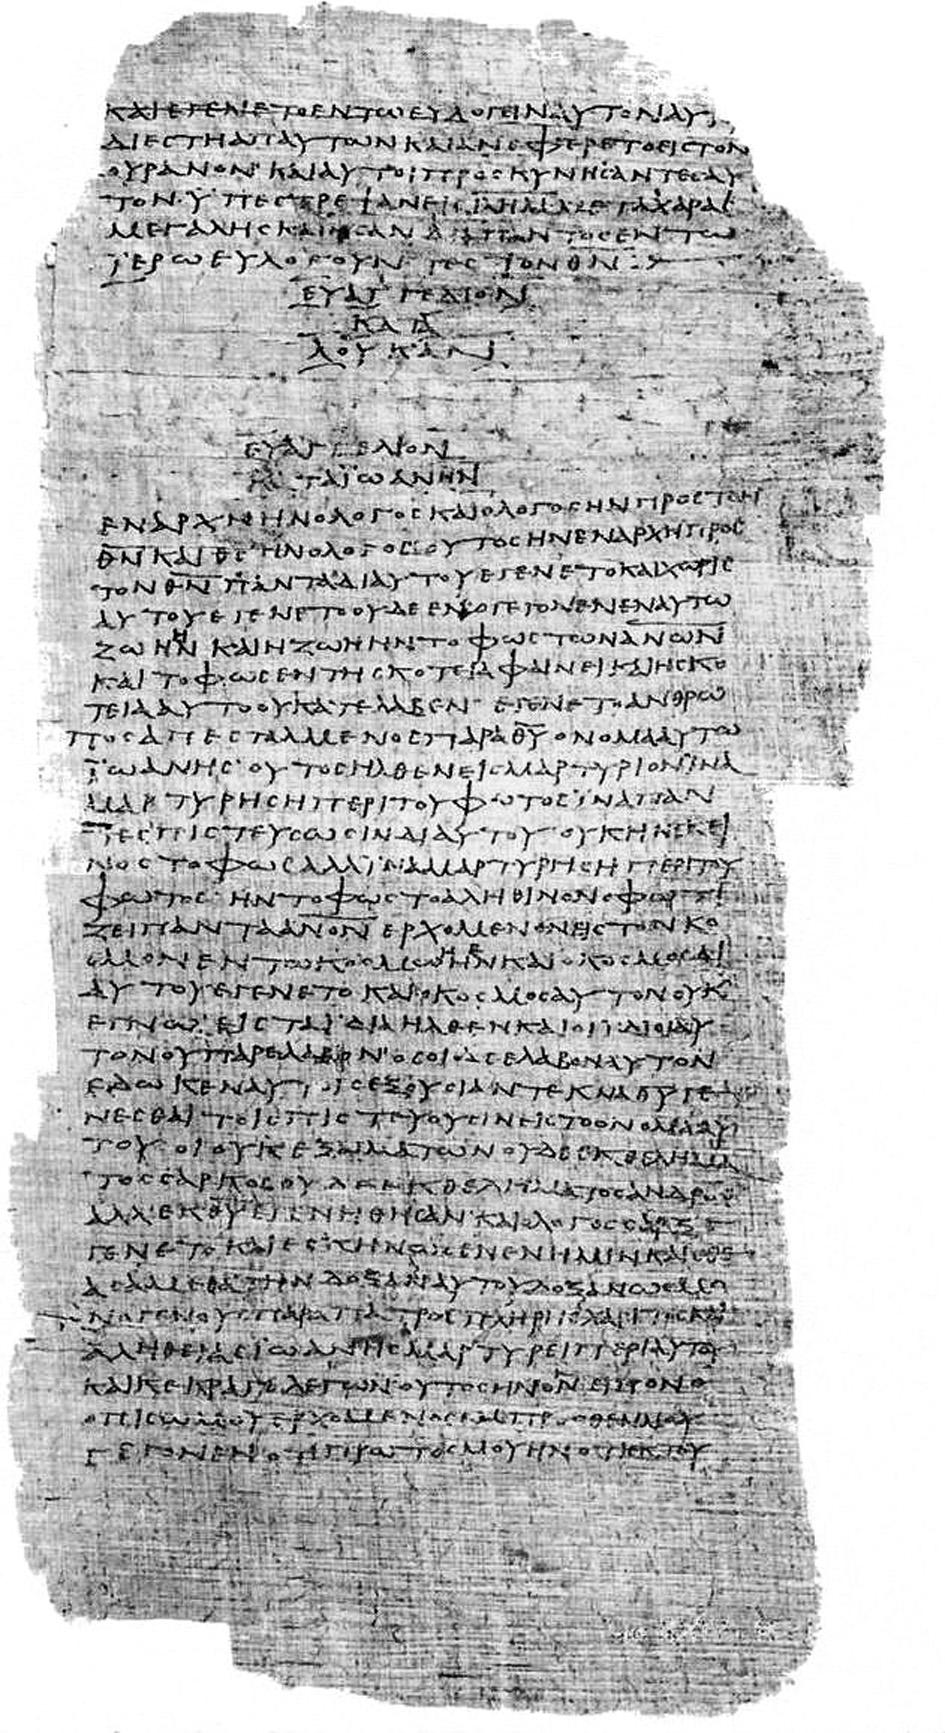 ΚΑΙΕΓΕΝΕΤΟΕΝΤΩΕΥΛΟΓΕΙΝΑΥΤΟΝΑΥ
ΔΙΕΣΤΗΑΠΑΥΤΩΝΚΑΙΑΝΕΦΕΡΕΤΟΕΙΣΤΟΝ
ΟΥΡΑΝΟΝ ΚΑΙΑΥΤΟΙΠΡΟΣΚΥΝΗΣΑΝΤΕΣΑΥ
ΤΟΝ ΫΠΕΣΤΡΕΨΑΝΕΙΣ ΜΕΤΑΧΑΡΑΣ
ΜΕΓΑΛΗΣΚΑΙΗΣΑΝΔΙΑΠΑΝΤΟΣΕΝΤΩ
ΪΕΡΩΕΥΛΟΓΟΥΝΤΕΣΤΟΝΘ̅Ν̅
ΕΥΑΓΓΕΛΙΟΝ
ΚΑΤΑ
ΛΟΥΚΑΝ
ΕΥΑΓΓΕΛΙΟΝ
ΚΑΤΑΪΩΑΝΗΝ
ΕΝΑΡΧΗΗΝΟΛΟΓΟΣΚΑΙΟΛΟΓΟΣΗΝΠΡΟΣΤΟΝ
Θ̅Ν̅ΚΑΙΘ̅Σ̅ΗΝΟΛΟΓΟΣ ΟΥΤΟΣΗΝΕΝΑΡΧΗΠΡΟΣ
ΤΟΝΘ̅Ν̅ΠΑΝΤΑΔΙΑΥΤΟΥΕΓΕΝΕΤΟΚΑΙΧΩΡΙΣ
ΑΥΤΟΥΕΓΕΝΕΤΟΟΥΔΕΕΝΟΓΕΓΟΝΕΝΕΝΑΥΤΩ
ΖΩΗΗΝ ΚΑΙΗΖΩΗΗΝΤΟΦΩΣΤΩΝΑ̅Ν̅Ω̅Ν̅
ΚΑΙΤΟΦΩΣΕΝΤΗΣΚΟΤΕΙΑΦΑΙΝΕΙΚΑΙΗΣΚΟ
ΤΕΙΑΑΥΤΟΟΥΚΑΤΕΛΑΒΕΝ ΕΓΕΝΕΤΟΑΝΘΡΩ
ΠΟΣΑΠΕΣΤΑΛΜΕΝΟΣΠΑΡΑΘ̅Υ̅ΟΝΟΜΑΑΥΤΩ
ΪΩΑΝΗΣ ΟΥΤΟΣΗΛΘΕΝΕΙΣΜΑΡΤΥΡΙΟΝΪΝΑ
ΜΑΡΤΥΡΗΣΗΠΕΡΙΤΟΥΦΩΤΟΣΪΝΑΠΑΝ
ΤΕΣΠΙΣΤΕΥΣΩΣΙΝΔΙΑΥΤΟΥ ΟΥΚΗΝΕΚΕΙ
ΝΟΣΤΟΦΩΣΑΛΛΪΝΑΜΑΡΤΥΡΗΣΗΠΕΡΙΤΟΥ
ΦΩΤΟΣ ΗΝΤΟΦΩΣΤΟΑΛΗΘΙΝΟΝΟΦΩΤΙ
ΖΕΙΠΑΝΤΑΑ̅Ν̅Ο̅Ν̅ΕΡΧΟΜΕΝΟΝΕΙΣΤΟΝΚΟ
ΣΜΟΝΕΝΤΩΚΟΣΜΩΗΝΚΑΙΟΚΟΣΜΟΣΔΙ
ΑΥΤΟΥΕΓΕΝΕΤΟΚΑΙΟΚΟΣΜΟΣΑΥΤΟΝΟΥΚ
ΕΓΝΩ ΕΙΣΤΑΪΔΙΑΗΛΘΕΝΚΑΙΟΙΪΔΙΟΙΑΥ
ΤΟΝΟΥΠΑΡΕΛΑΒΟΝ ΟΣΟΙΔΕΕΛΑΒΟΝΑΥΤΟΝ
ΕΔΩΚΕΝΑΥΤΟΙΣΕΞΟΥΣΙΑΝΤΕΚΝΑΘ̅Υ̅ΓΕ
ΝΕΣΘΑΙΤΟΙΣΠΙΣΤΕΥΟΥΣΙΝΕΙΣΤΟΟΝΟΜΑΑΥ
ΤΟΥ ΟΙΟΥΚΕΞΑΙΜΑΤΩΝΟΥΔΕΕΚΘΕΛΗΜΑ
ΤΟΣΣΑΡΚΟΣΟΥΔΕΕΚΘΕΛΗΜΑΤΟΣΑΝΔΡΟΣ
ΑΛΛΕΚΘ̅Υ̅ΕΓΕΝΗΘΗΣΑΝ ΚΑΙΟΛΟΓΟΣΣΑΡΞΕ
ΓΕΝΕΤΟΚΑΙΕΣΚΗΝΩΣΕΝΕΝΗΜΙΝΚΑΙΕΘΕ
ΑΣΑΜΕΘΑΤΗΝΔΟΞΑΝΑΥΤΟΥΔΟΞΑΝΩΣΜΟ
ΝΟΓΕΝΟΥΣΠΑΡΑΠΑΤΡΟΣΠΛΗΡΗΣΧΑΡΙΤΟΣΚΑΙ
ΑΛΗΘΕΙΑΣΪΩΑΝΗΣΜΑΡΤΥΡΕΙΠΕΡΙΑΥΤΟΥ
ΚΑΙΚΕΚΡΑΓΕΛΕΓΩΝ ΟΥΤΟΣΗΝΟΝΕΙΠΟΝΟ
ΟΠΙΣΩΜΟΥΕΡΧΟΜΕΝΟΣΕΜΠΡΟΣΘΕΝΜΟΥ
ΓΕΓΟΝΕΝΟΤΙΠΡΩΤΟΣΜΟΥΗΝΟΤΙΕΚΤΟΥ